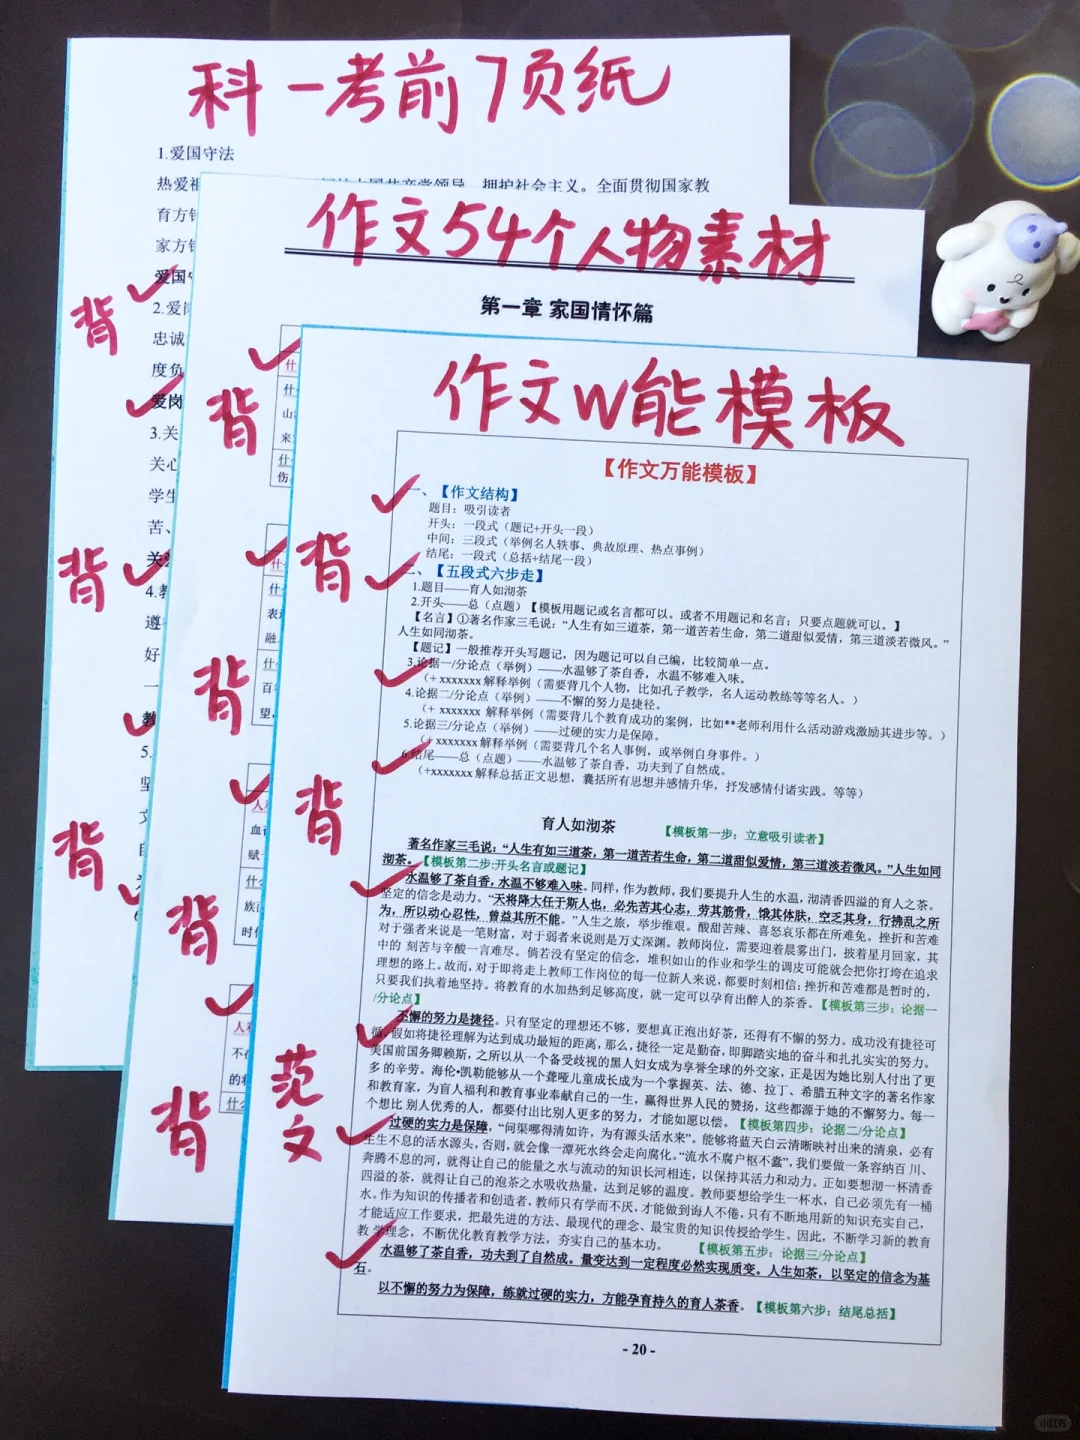 科一考前7页纸
1.爱国守法
热爱祖
领导，拥护社会主义。全面贯彻国家教
育方针
家方针
爱国守
2.爱岗
忠诚
度负
爱岗
3.关
关心
学生
苦、
关爱
4.教
遵
好
一
教
5.
坚
文
背
背
背
作文54个人物素材
第一章 家国情怀篇
什
什
山
来
什
伤
什
什
表
融
什
百
望
人
血
赋
什
族
时
人
不
的
什
背
背
背
背
作文W能模板
【作文万能模板】
一、【作文结构】
题目：吸引读者
开头：一段式（题记+开头一段）
中间：三段式（举例名人轶事、典故原理、热点事例）
结尾：一段式（总括+结尾一段）
二、【五段式六步走】
1.题目——育人如沏茶
2.开头——总（点题）【模板用题记或名言都可以。或者不用题记和名言；只要点题就可以。】
【名言】①著名作家三毛说：“人生有如三道茶，第一道苦若生命，第二道甜似爱情，第三道淡若微风。”
人生如同沏茶。
【题记】一般推荐开头写题记，因为题记可以自己编，比较简单一点。
3.论据一/分论点（举例）——水温够了茶自香，水温不够难入味。
（+ xxxxxxx 解释举例（需要背几个人物，比如孔子教学，名人运动教练等等名人。）
4.论据二/分论点（举例）——不懈的努力是捷径。
（+ xxxxxxx 解释举例（需要背几个教育成功的案例，比如**老师利用什么活动游戏激励其进步等。）
5.论据三/分论点（举例）——过硬的实力是保障。
（+ xxxxxxx 解释举例（需要背几个名人事例，或举例自身事件。）
6.结尾——总（点题）——水温够了茶自香，功夫到了自然成。
（+xxxxxxx 解释总括正文思想，囊括所有思想并感情升华，抒发感情付诸实践。等等）
育人如沏茶 【模板第一步：立意吸引读者】
著名作家三毛说：“人生有如三道茶，第一道苦若生命，第二道甜似爱情，第三道淡若微风。”人生如同
沏茶。【模板第二步:开头名言或题记】
水温够了茶自香，水温不够难入味。同样，作为教师，我们要提升人生的水温，沏清香四溢的育人之茶。
坚定的信念是动力。“天将降大任于斯人也，必先苦其心志，劳其筋骨，饿其体肤，空乏其身，行拂乱之所
为，所以动心忍性，曾益其所不能。”人生之旅，举步维艰。酸甜苦辣、喜怒哀乐都在所难免。挫折和苦难
对于强者来说是一笔财富，对于弱者来说则是万丈深渊。教师岗位，需要迎着晨雾出门，披着星月回家，其
中的 刻苦与辛酸一言难尽。倘若没有坚定的信念，堆积如山的作业和学生的调皮可能就会把你打垮在追求
理想的路上。故而，对于即将走上教师工作岗位的每一位新人来说，都要时刻相信：挫折和苦难都是暂时的，
只要我们执着地坚持。将教育的水加热到足够高度，就一定可以孕育出醉人的茶香。【模板第三步：论据一
/分论点】
不懈的努力是捷径。只有坚定的理想还不够，要想真正泡出好茶，还得有不懈的努力。成功没有捷径可
循，假如将捷径理解为达到成功最短的距离，那么，捷径一定是勤奋，即脚踏实地的奋斗和扎扎实实的努力。
美国前国务卿赖斯，之所以从一个备受歧视的黑人妇女成为享誉全球的外交家，正是因为她比别人付出了更
多 的辛劳。海伦•凯勒能够从一个聋哑儿童成长成为一个掌握英、法、德、拉丁、希腊五种文字的著名作家
和教育家，为盲人福利和教育事业奉献自己的一生，赢得世界人民的赞扬，这些都源于她的不懈努力。每一
个想比 别人优秀的人，都要付出比别人更多的努力，才能如愿以偿。【模板第四步：论据二/分论点】
过硬的实力是保障，“问渠哪得清如许，为有源头活水来”。能够将蓝天白云清晰映衬出来的清泉，必有
生生不息的活水源头，否则，就会像一潭死水终会走向腐化。“流水不腐户枢不蠹”，我们要做一条容纳百 川、
奔腾不息的河，就得让自己的能量之水与流动的知识长河相连，以保持其活力和动力。正如要想沏一杯清香
四溢的茶，就得让自己的泡茶之水吸收热量，达到足够的温度。教师要想给学生一杯水，自己必须先有一桶
水。作为知识的传播者和创造者，教师只有学而不厌，才能做到诲人不倦，只有不断地用新的知识充实自己，
才能适应工作要求，把最先进的方法、最现代的理念、最宝贵的知识传授给学生。因此，不断学习新的教育
教 学理念，不断优化教育教学方法，夯实自己的基本功。 【模板第五步：论据三/分论点】
水温够了茶自香，功夫到了自然成。量变达到一定程度必然实现质变。人生如茶，以坚定的信念为基
石。
以不懈的努力为保障，练就过硬的实力，方能孕育持久的育人茶香。【模板第六步：结尾总括】
- 20 -
背
背
范文
小红书